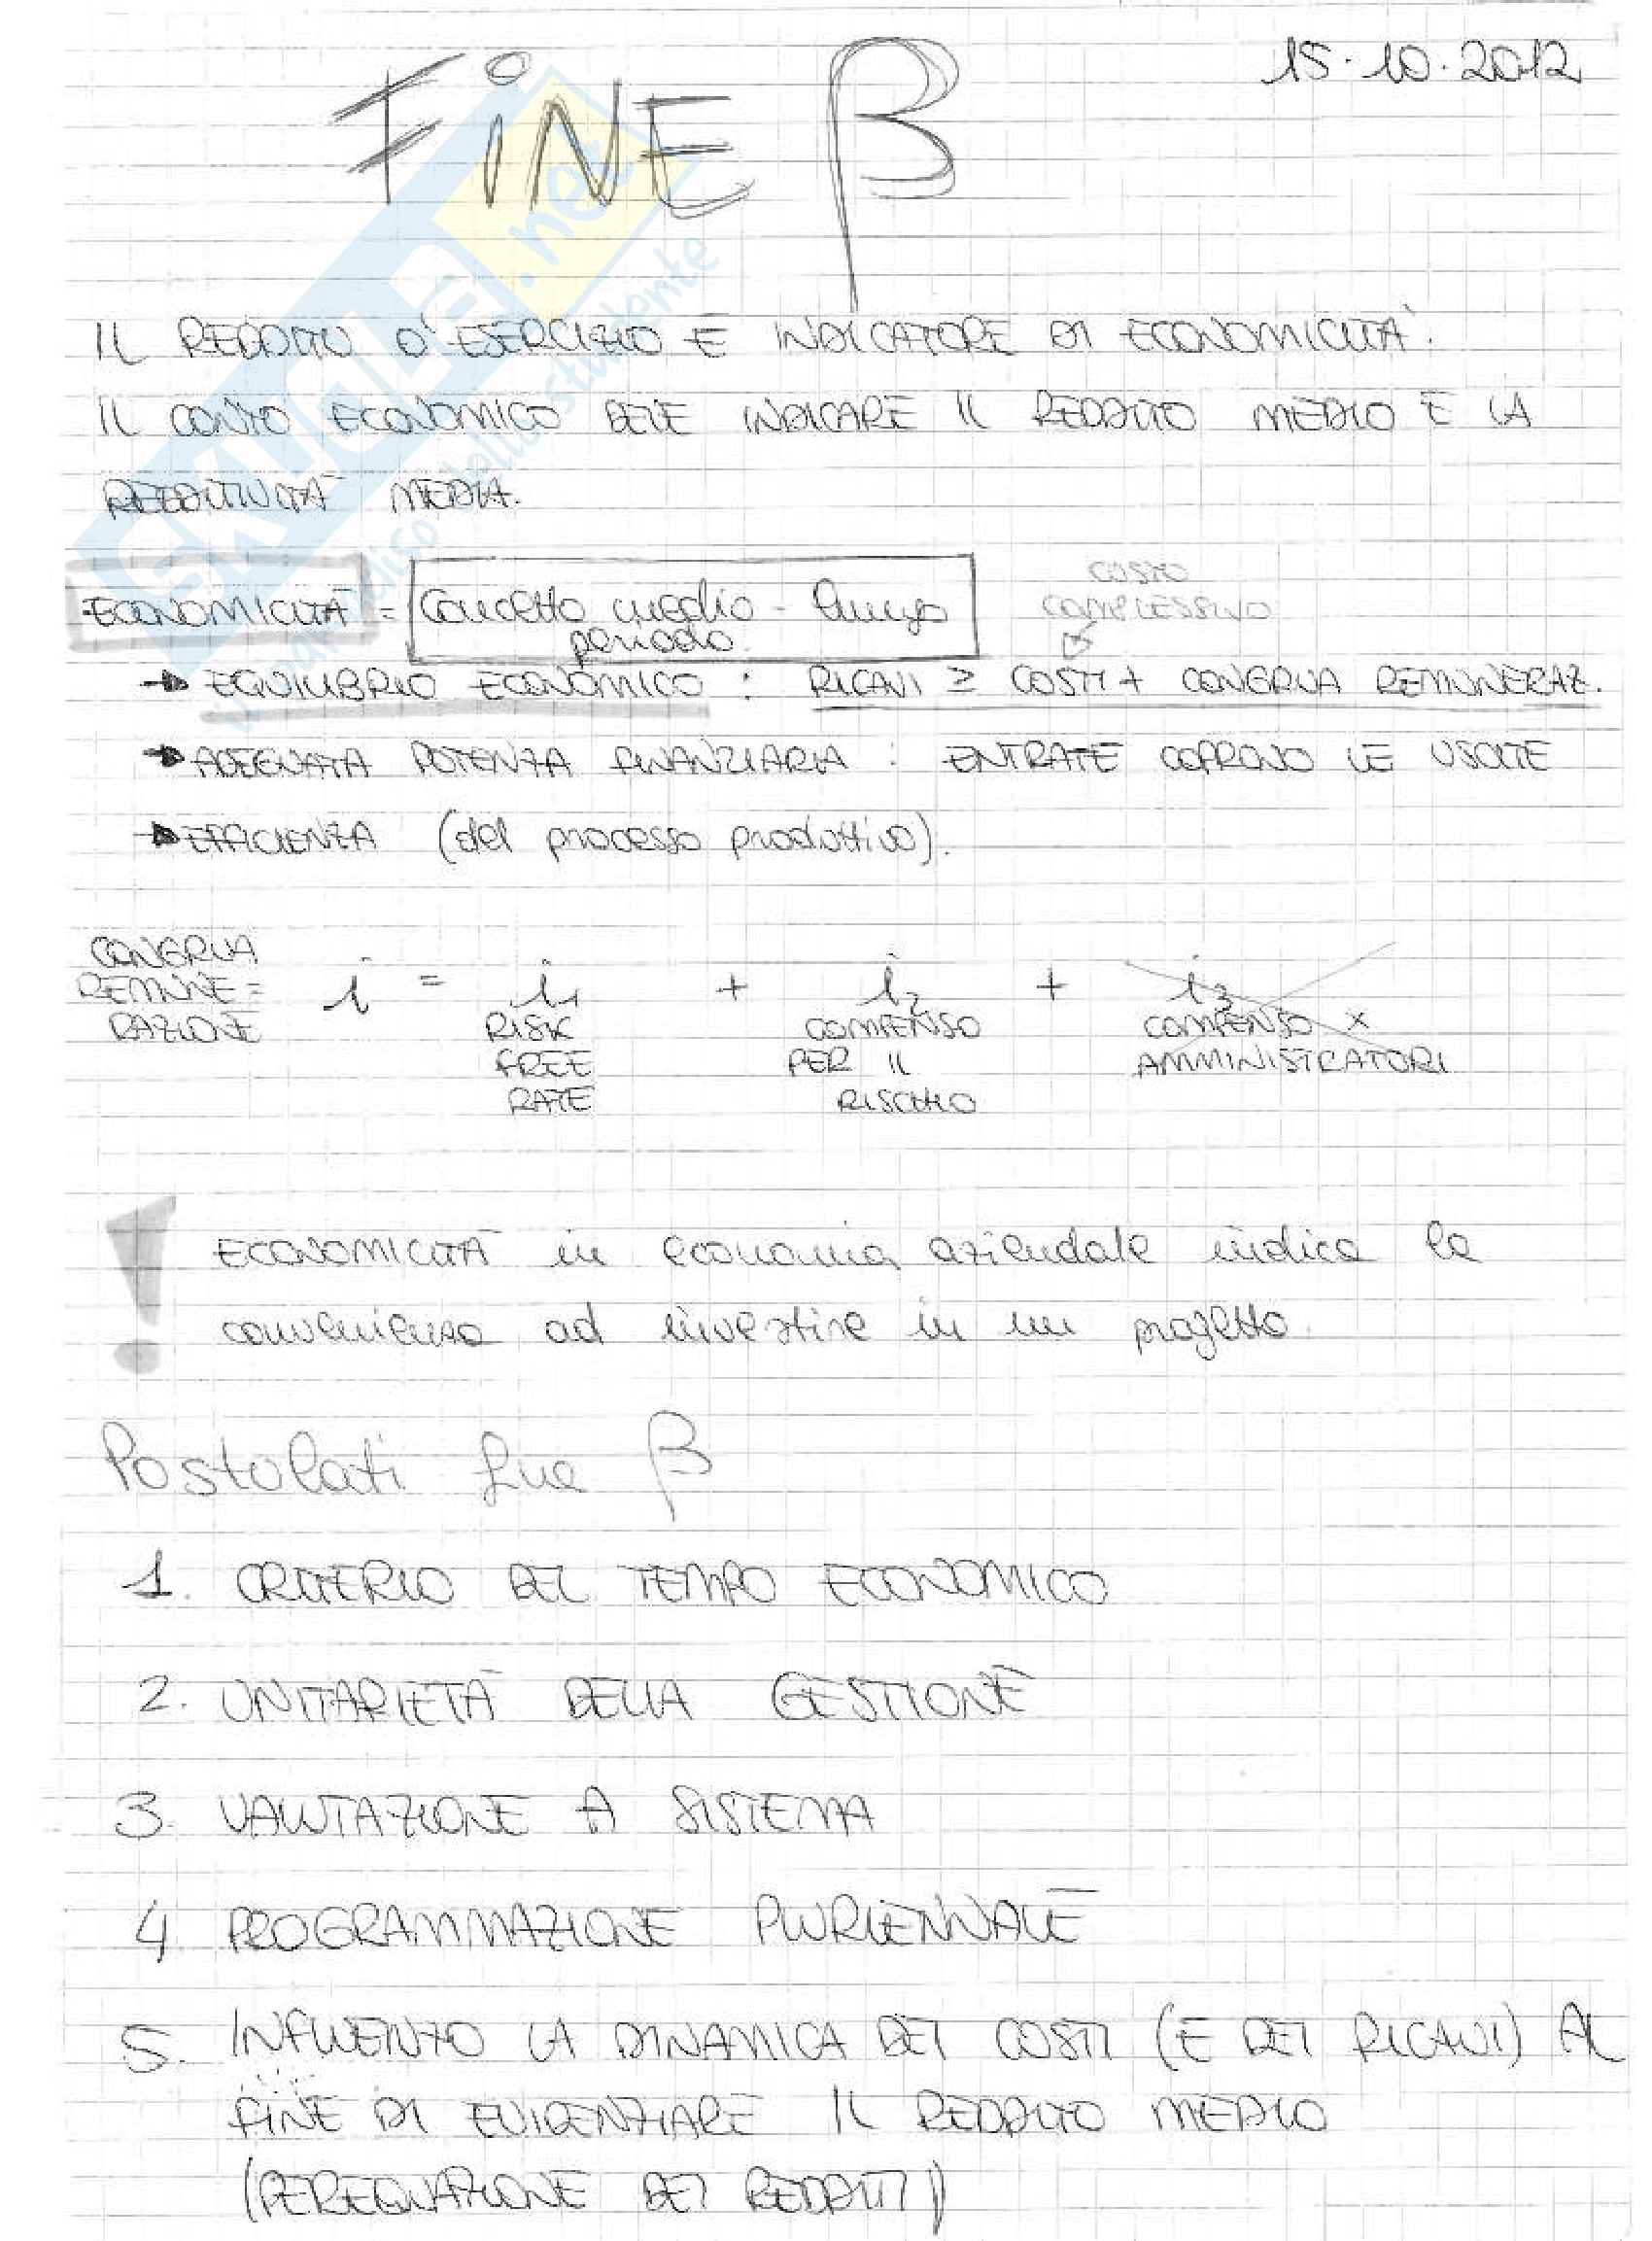 15.10.2012
FiNE β
IL REDDITO D'ESERCIZIO È INDICATORE DI ECONOMICITÀ.
IL CONTO ECONOMICO DEVE INDICARE IL REDDITO MEDIO E LA
REDDITIVITÀ MEDIA.
COSTO
COMPLESSIVO
ECONOMICITÀ = Concetto medio - lungo
periodo.
→ EQUILIBRIO ECONOMICO : RICAVI ≥ COSTI + CONGRUA REMUNERAZ.
→ ADEGUATA POTENZA FINANZIARIA : ENTRATE COPRONO LE USCITE
→ EFFICIENZA (del processo produttivo).
CONGRUA
REMUNE= i = i1 + i2 + i3
RAZIONE RISK COMPENSO COMPENSO x
FREE PER IL AMMINISTRATORI
RATE RISCHIO
! ECONOMICITÀ in economia aziendale indica la
convenienza ad investire in un progetto.
Postulati fine β
1. CRITERIO DEL TEMPO ECONOMICO
2. UNITARIETÀ DELLA GESTIONE
3. VALUTAZIONE A SISTEMA
4 PROGRAMMAZIONE PLURIENNALE
5. INFLUENZO LA DINAMICA DEI COSTI (E DEI RICAVI) AL
FINE DI EVIDENZIARE IL REDDITO MEDIO
(PEREQUAZIONE DEI REDDITI)
SKUOLA.net